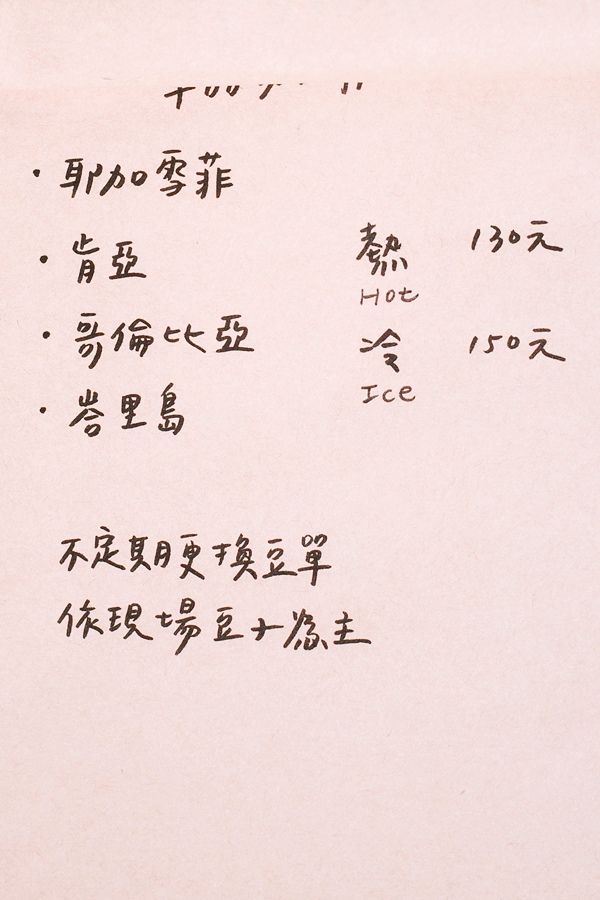 ・耶加雪菲
・肯亞
熱 130元
Hot
・哥倫比亞
冷 150元
Ice
・峇里島
不定期更換豆單
依現場豆子為主